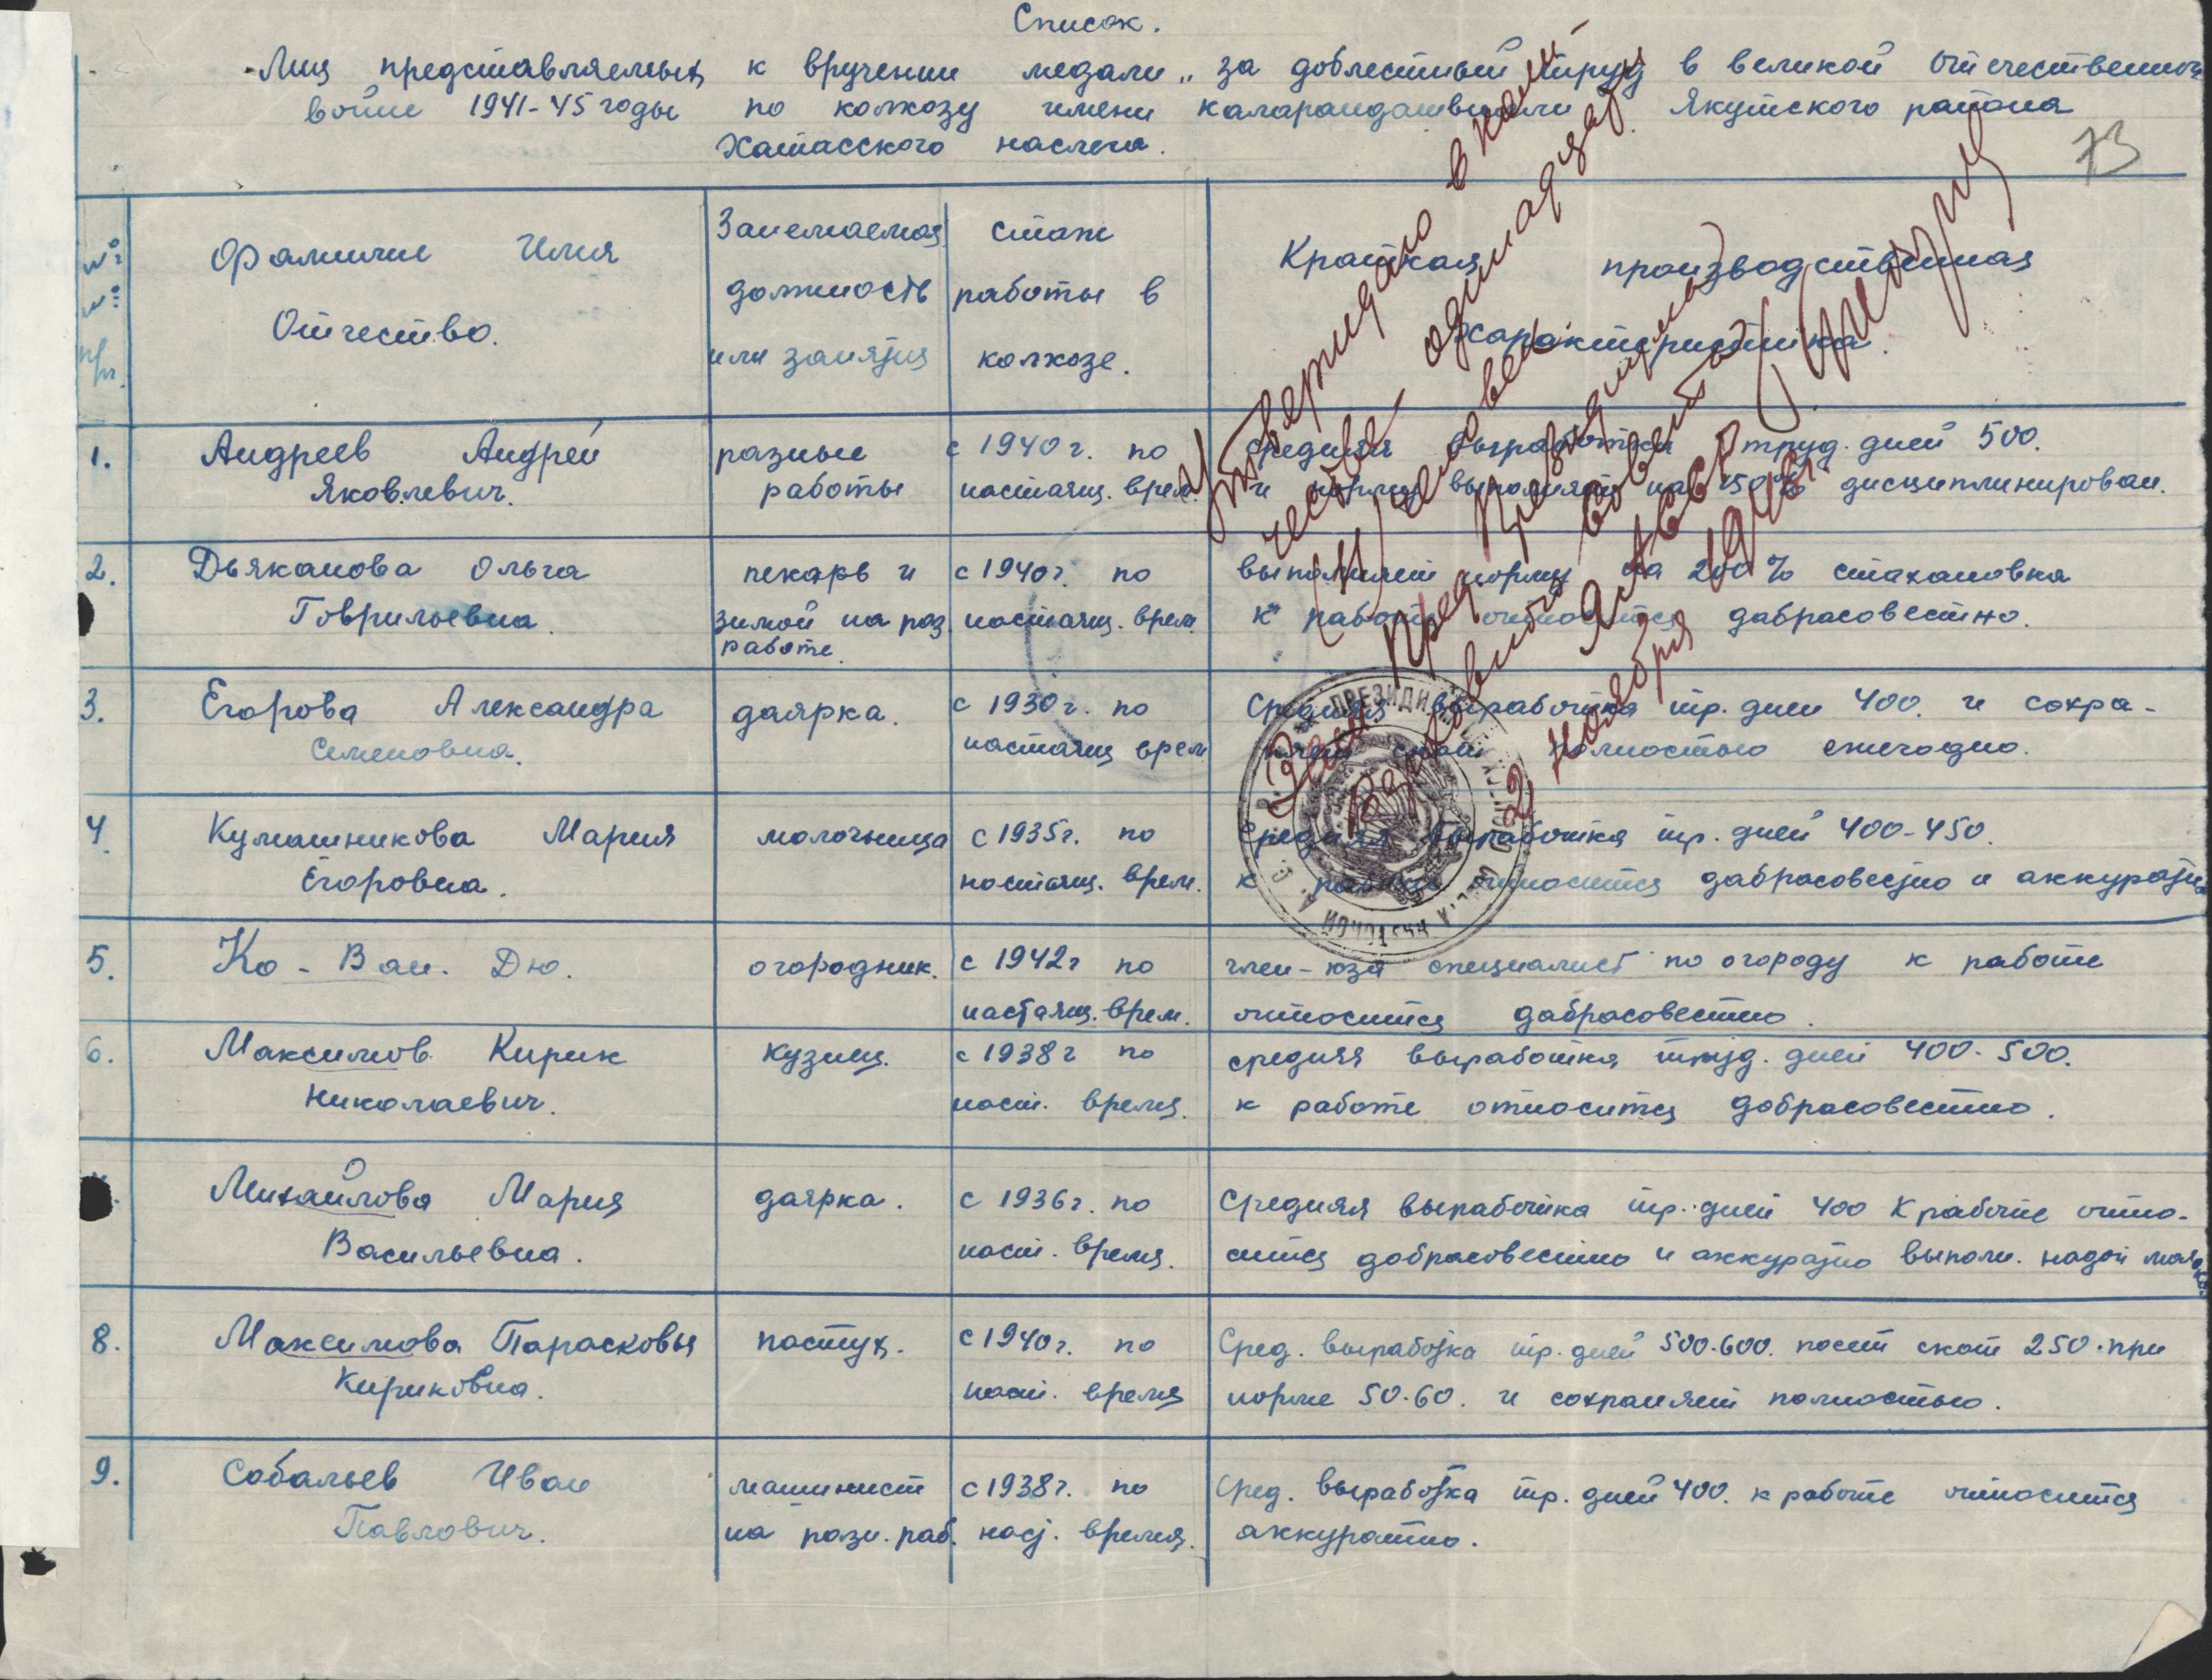 Список.
Лиц представляемых к вручении медали „ за доблестный труд в великой отечественной
войне 1941-45 годы по колхозу имени каларандашвили Якутского района
Хатасского наслега.
73
№ Фамилие Имя Занемаемая стаж Краткая производственная
№ должность работы в
п/п. Отчество. или занятия колхозе. характеристика.
1. Андреев Андрей разные с 1940 г. по Средняя выработка труд. дней 500.
Яковлевич. работы настаящ. врем. и норму выполняет на 150% дисциплинирован.
2. Дьяканова Ольга пекарь и с 1940г. по выполняет норму на 200% стахановка
Говрильевна. зимой на раз. настаящ. врем. к работе относится дабрасовестно.
работе.
3. Егорова Александра даярка. с 1930 г. по Средняя выработка тр. дней 400. и сохра-
Семеновна. настаящ врем няет скот полностью ежегодно.
4. Кумашникова Мария молочница с 1935г. по Средняя выработка тр. дней 400-450.
Егоровна. настаящ. врем. к работе относится дабрасовестно и аккуратно
5. Ко - Ван. Дю. огородник. с 1942г по член-юза специалист по огороду к работе
настаящ. врем. относится дабрасовестно.
6. Максимов Кирик кузнец. с 1938г по средняя выработка труд. дней 400-500.
Николаевич. наст. время. к работе относится добрасовестно.
Михайлова Мария даярка. с 1936г. по Средняя выработка тр. дней 400 К работе отно-
Васильевна. наст. время. сится добрасовестно и аккуратно выполн. надой молока.
8. Максимова Парасковья пастух. с 1940г. по Сред. выработка тр. дней 500-600. пасет скот 250. при
Кириковна. наст. время норме 50-60. и сохраняет полностью.
9. Собальев Иван машинист с 1938г. по Сред. выработка тр. дней 400. к работе относится
Павлович. на разн. раб. наст. время. аккуратно.
Утверждаю в коли-
честве одиннадцать
(11) человек.
Зам Пред Президиума
Верховного Совета
ЯАССР
2 ноября 1946г.